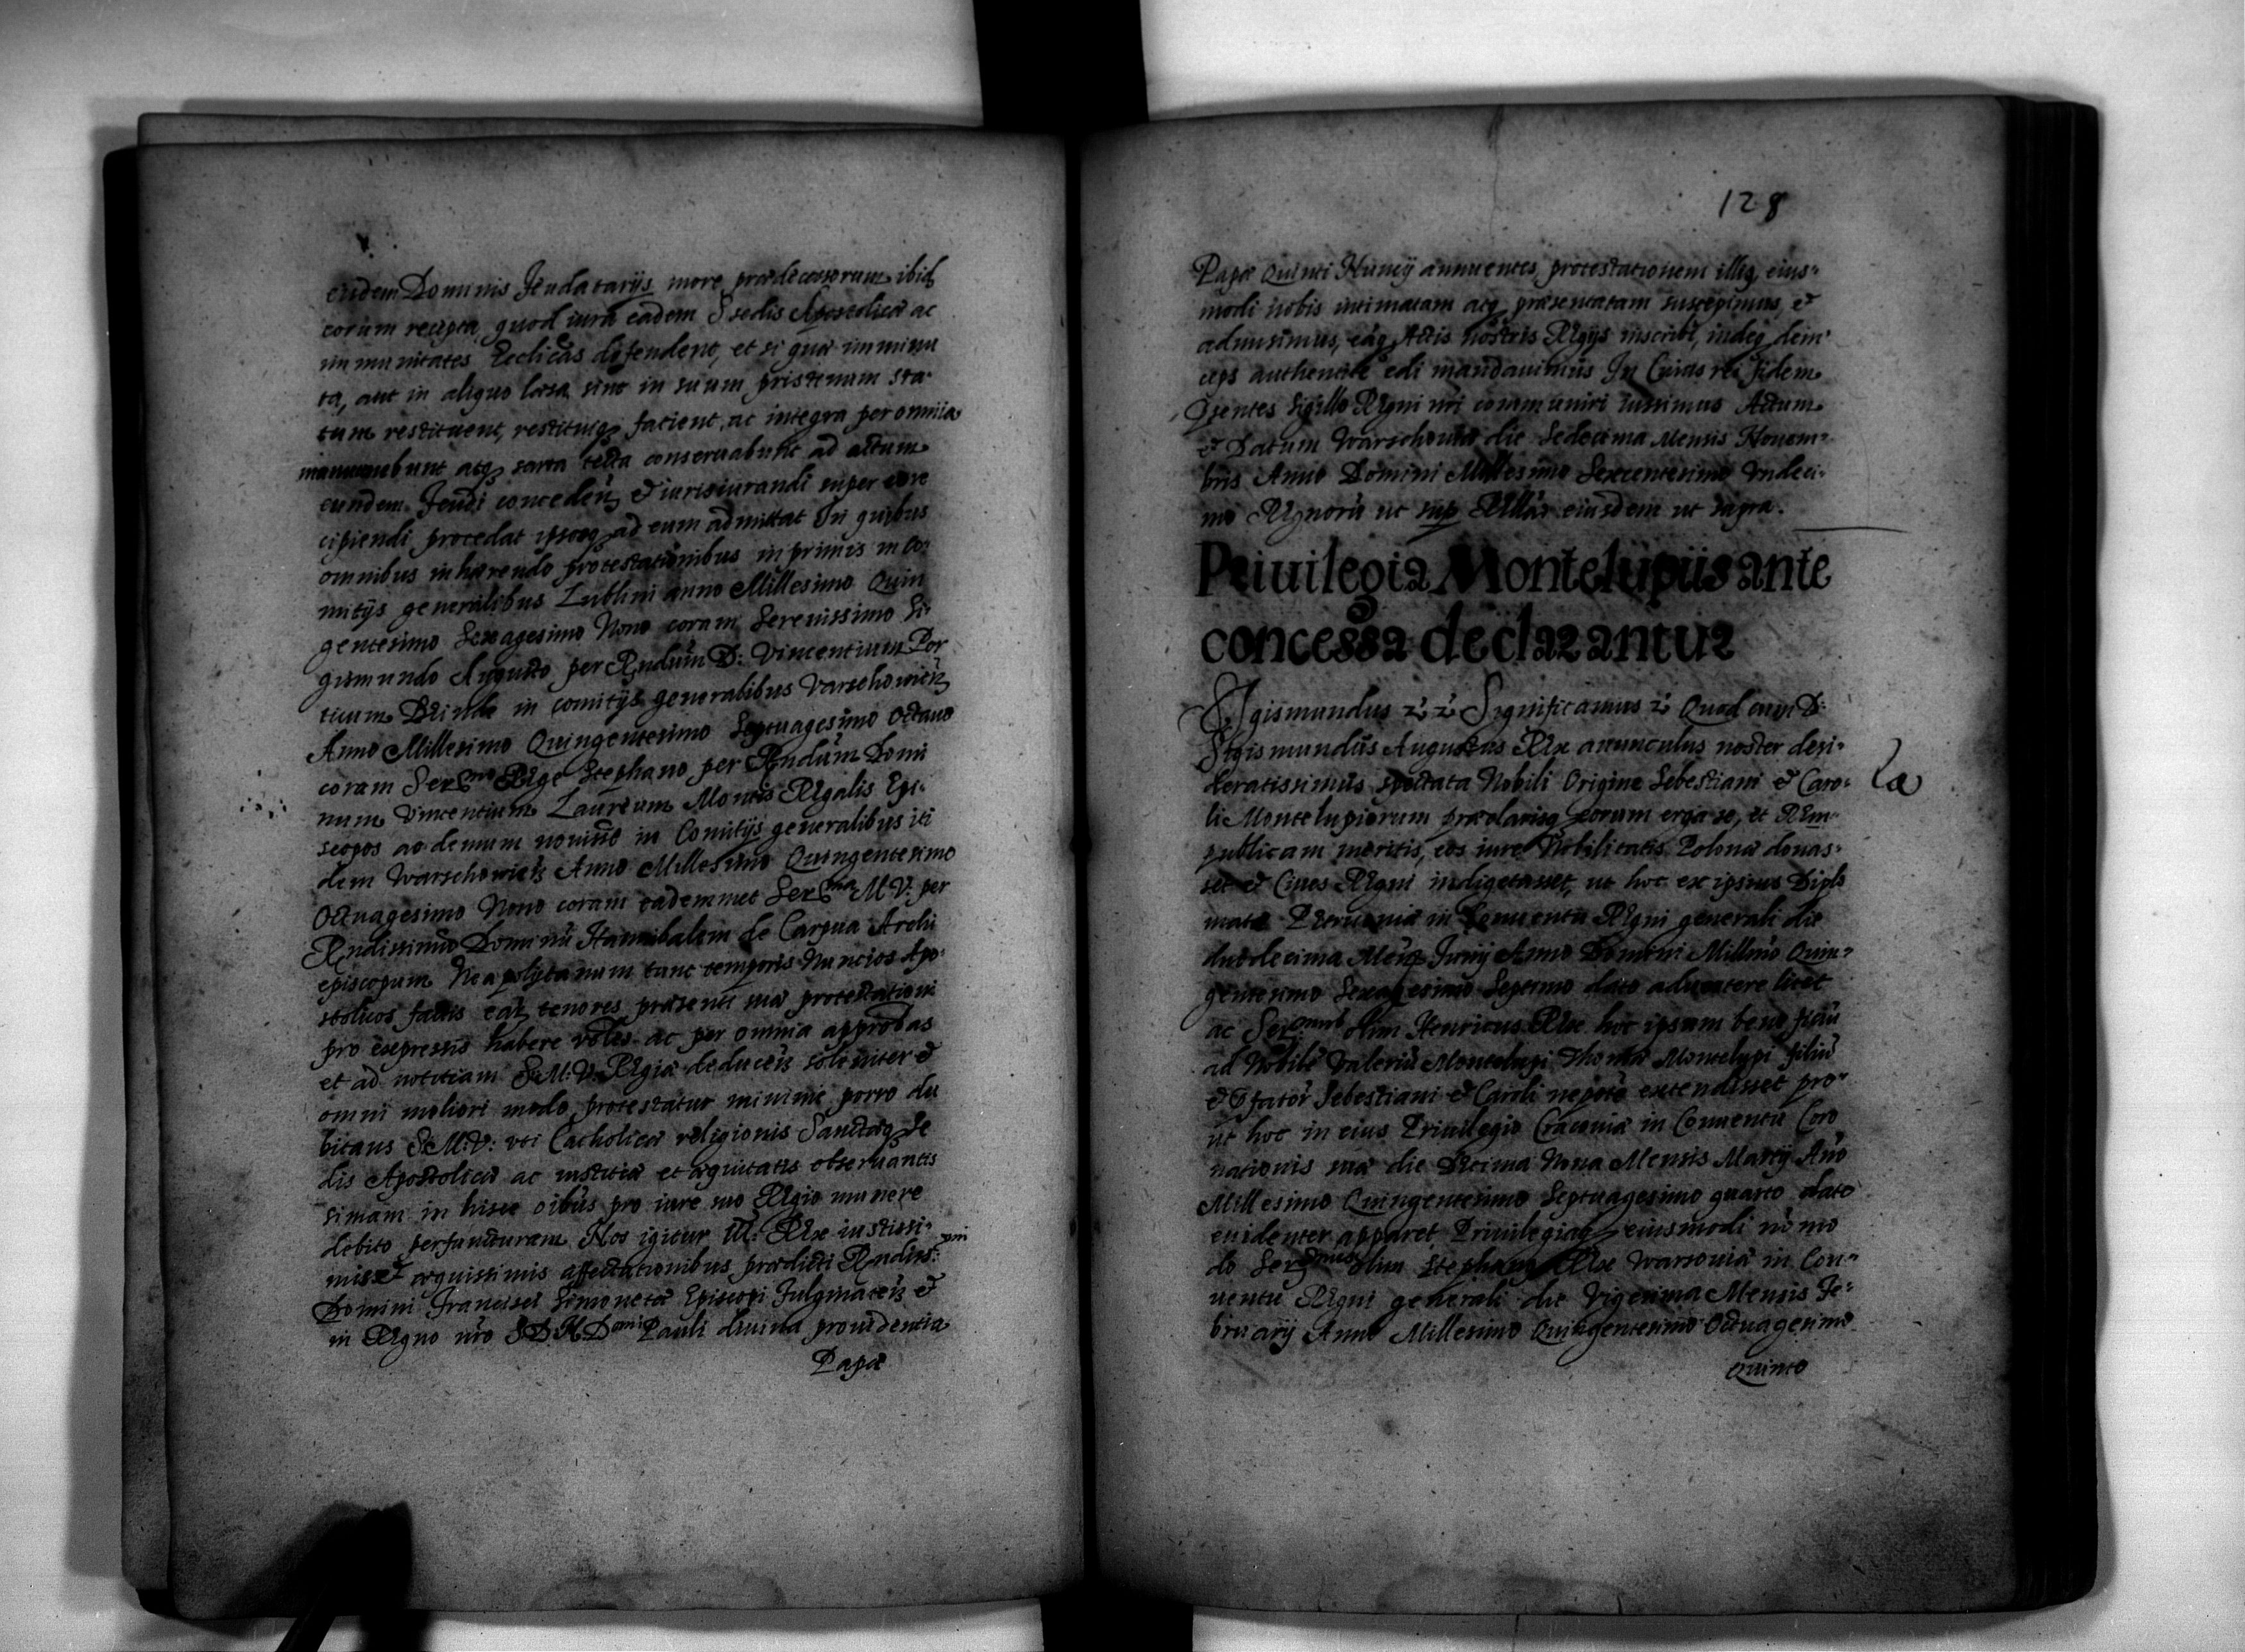 eidem Dominis Feudatarijs more prædecessorum ibidẽ
eorum recepta, quod iura eadem S sedis Apostolicæ ac
immunitates Ecclicãs defendent, et si qua imminu
ta, aut in aliquo læsa sint in suum pristinum sta-
tum restituent, restituiq3 facient, ac integra per omnia
manutenebunt atq3 sarta tecta conseruabunt ad actum
eundem Feudi concedeñ et iurisiurandi super eo re
cipiendi procedat ipsosq3 ad eum admittat In quibus
omnibus inhærendo protestationibus in primis in Co-
mitijs generalibus Lublini anno Millesimo Quin
gentesimo Sexagesimo Nono coram Serenissimo Si-
gismundo Augusto per Rndũm D: Vincentium Por
ticum Deinde in comitijs generalibus Varschouieñ
Anno Millesimo Quingentesimo Septuagesimo Octauo
coram Sermo Rege Stephano per Rndũm Domi
num Vincentium Laureum Montis Regalis Epi-
scopos ac demum nouiter in Comitijs generalibus iti
dem Warschouieñ Anno Millesimo Quingentesimo
Octuagesimo Nono coram eademmet Serma M.V. per
Rndissimũ Dominũ Hannibalem de Capua Archi
episcopum Neapolytanum tunc temporis Nuncios Apo-
stolicos factis eaꝝ tenores præsenti suæ protestationi
pro expressis habere voles ac per omnia approbas
et ad notitiam S.M:V. Regiæ deduceñ solenniter et
omni meliori modo protestatur minime porro du
bitans S.M:V: vti Catholicæ religionis Sanctæq3 Se
dis Apostolicæ ac iustitiæ et æquitatis obseruantis
simam in hisce oibus pro iure suo Regio munere
debito perfuncturam Nos igitur Rex iustissi-
mis et æquissimis affectationibus prædicti Rndiss:mi
Domini Francisci Simonetæ Episcopi Fulginateñ et
in Regno nro S D. N. Domi Pauli diuina prouidentia
Papæ
128
Papæ Quinti Nuncij annuentes, protestationem illiq eius-
modi nobis intimatam atq3 præsentatam suscepimus, et
admisimus, eaq3 Actis nostris Regijs inscribi, indeq3 dein-
ceps authentice edi mandauimus In Cuius rei fidem
Pñtes Sigillo Regni nri communiri iussimus Actum
et Datum Warschouiæ die Sedecima Mensis Nouem-
bris Anno Domini Millesimo Sexcentesimo Vndeci-
mo Regnorũ ut sup Rellãs eiusdem ut supra.
Priuilegia Montelupiis ante
concessa declarantur
Sigismundus Significamus Quod cum D:
Sigismundus Augustus Rex auunculus noster desi-
deratissimus spectata Nobili Origine Sebestiani et Caro-
li Montelupiorum præclarisq3 eorum erga se, et Rem-
publicam meritis, eos iure Nobilitatis Polonæ donas-
set et Ciues Regni indigetasset, ut hoc ex ipsius Diplo
mate Petricouiæ in Conuentu Regni generali die
duodecima Meñs Junij Anno Domini Millmo Quin-
gentesimo Sexagesimo Septimo dato aduertere licet
ac Sermus olim Henricus Rex hoc ipsum beneficiũ
ad Nobilẽ Valeriũ Montelupi Thomæ Montelupi filiũ
et pfator Sebestiani et Caroli nepotẽ extendisset pro-
ut hoc in eius Priuilegio Cracouiæ in Conuentu Coro
nationis suæ die Decima Nona Mensis Martij Año
Millesimo Quingentesimo Septuagesimo quarto dato
euidenter apparet Priuilegiaq3 eiusmodi nõ mo
do Sermus olim Stephanus Rex Warsouiæ in Con-
uentu Regni generali die Vigesima Mensis Fe-
bruarij Anno Millesimo Quingentesimo Octuagesimo
Quinto